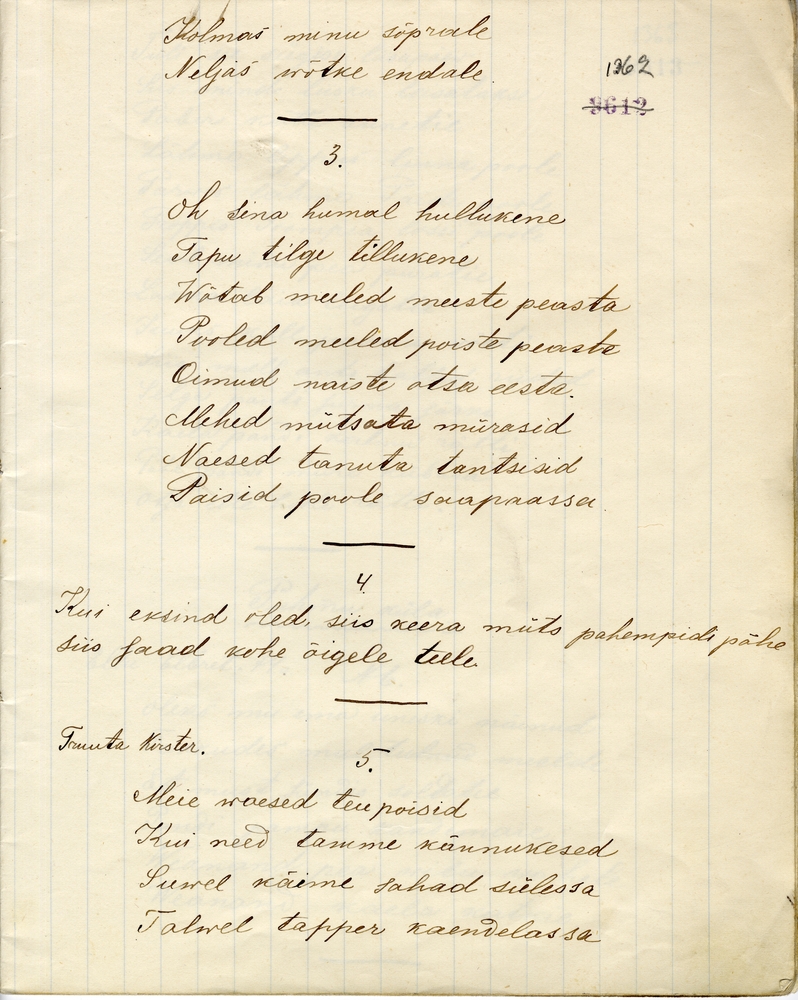 Kolmas minu sõprale
Neljas wõtke endale.
1962
8612
3.
Oh sina humal hullukene
Tapu tilge tillukene
Wõtab meeled meeste peasta
Pooled meeled poiste peaste
Oimud naiste otsa eesta.
Mehed mütsata mürasid
Naesed tanuta tantsisid
Paisid poole saapaassa
4.
Kui eksind oled, siis keera müts pahempidi pähe
siis saad kohe õigele teele
Truuta Kirster.
5.
Meie waesed teupoisid
Kui need tamme kännukesed
Suwel käime sahad sülessa
Talwel tapper kaendelassa